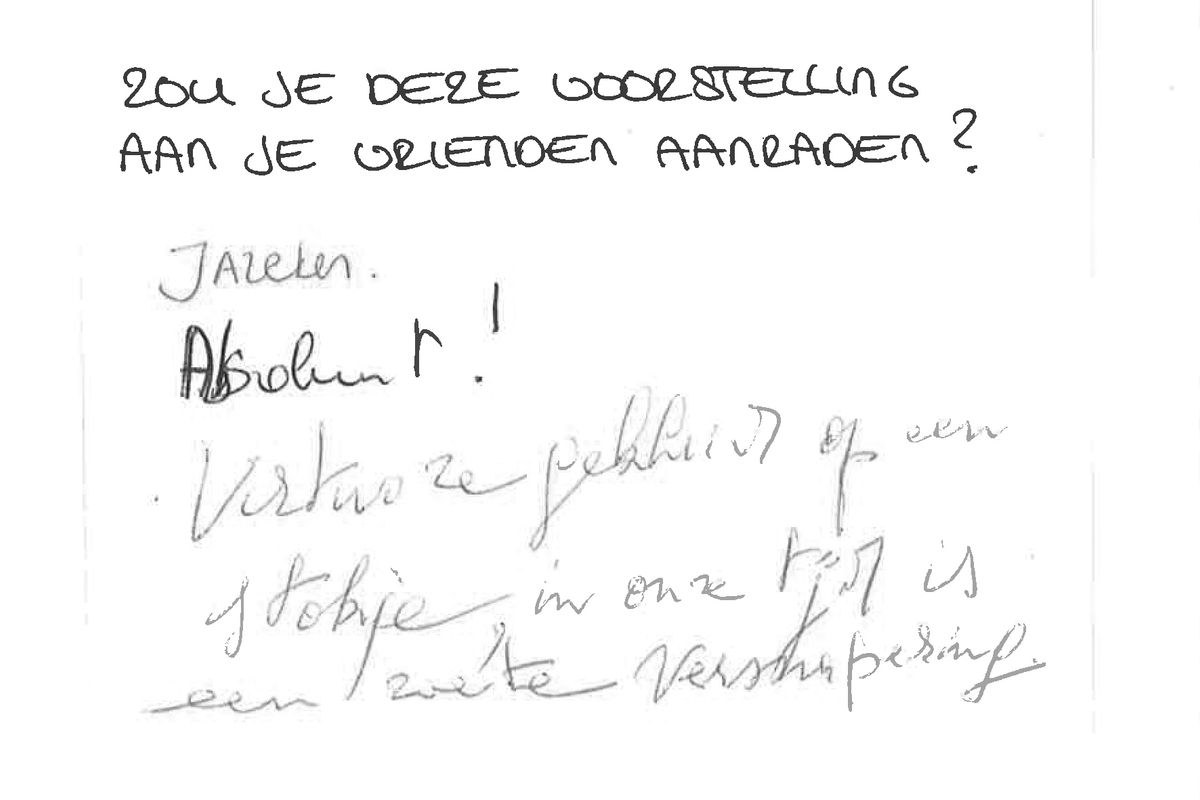 ZOU JE DEZE VOORSTELLING
AAN JE VRIENDEN AANRADEN?
JAzeker.
Absoluut!
Virtuoze gekheid op een
stokje, in onze tijd is
een zoete versnapering.